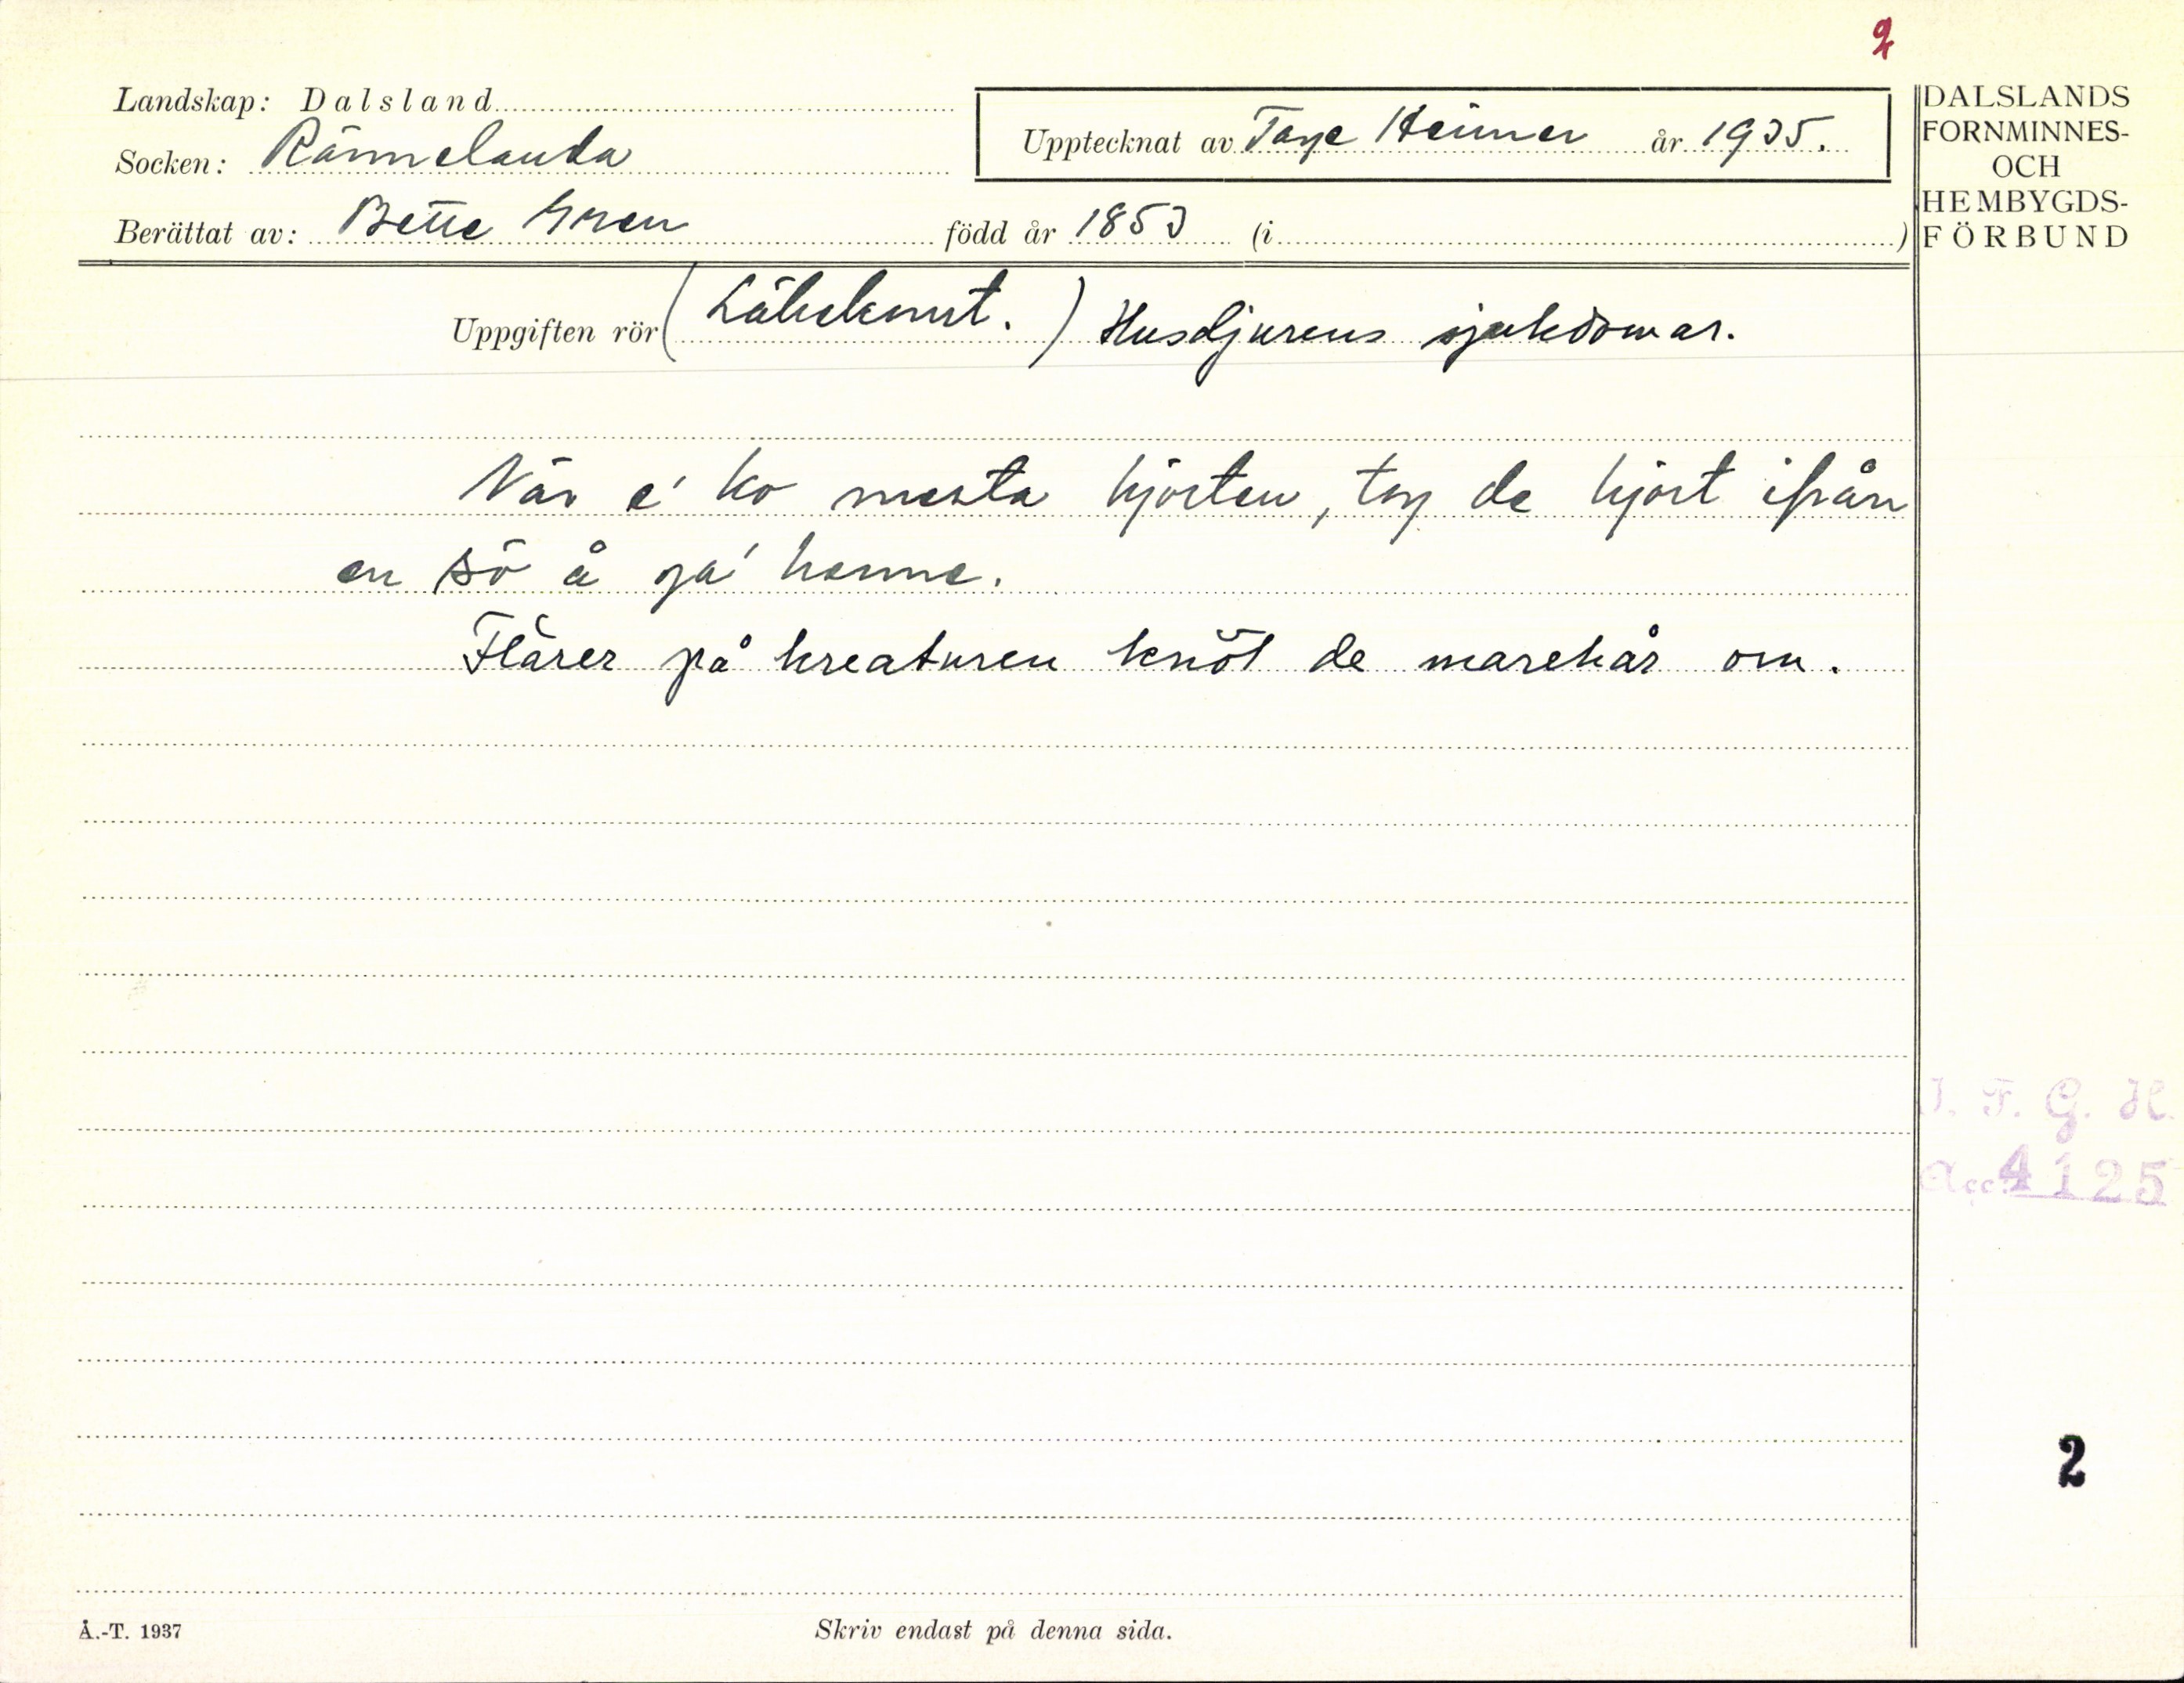 2
Landskap: Dalsland
Socken: Rännelanda
Upptecknat av Tage Heimer år 1935.
Berättat av: Bette Gren född år 1853 (i )
DALSLANDS
FORNMINNES-
OCH
HEMBYGDS-
FÖRBUND
Uppgiften rör (Läkekonst.) Husdjurens sjukdomar.
När e' ko mesta hjorten, tog de hjort ifrån
en sö å ga' henne.
Flärer på kreaturen knöt de marehår om.
I. F. G. H.
Acc. 4125
2
Å.-T. 1937
Skriv endast på denna sida.